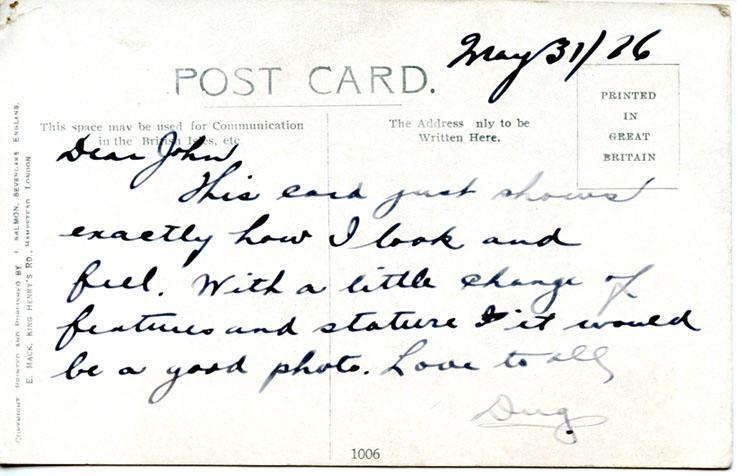 May 31/26
POST CARD.
PRINTED
IN
GREAT
BRITAIN
This space may be used for Communication
in the British Isles, etc
The Address nly to be
Written Here.
Dear John,
This card just shows
exactly how I look and
feel. With a little change of
features and stature it would
be a good photo. Love to all
Dug
1006
COPYRIGHT PRINTED AND PUBLISHED BY J. SALMON, SEVENOAKS ENGLAND.
E. MACK, KING HENRY'S RD., HAMPSTEAD, LONDON